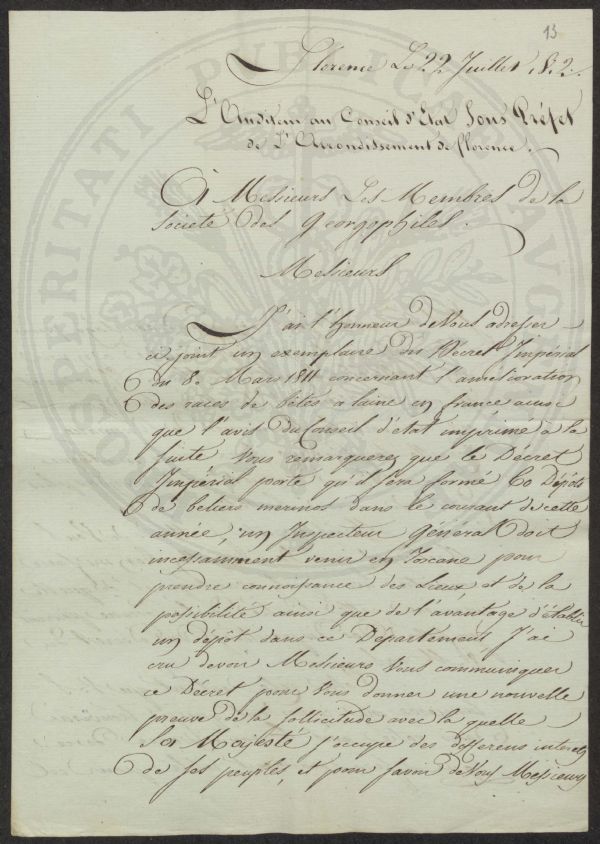 13
Florence Le 22 Juillet 1812.
L'Auditeur au Conseil d'Etat Sous Préfet
de L'Arrondissement de florence.
A Messieurs Les Membres de la
Societé des Georgophiles.
Messieurs
J'ai l'honneur de Vous adresser
ci joint un exemplaire du Décret Impérial
du 8. Mars 1811 concernant l'amélioration
des races de bêtes a laine en france ainsi
que l'avis du Conseil d'etat imprimé à la
suite Vous remarquerez que le Décret
Impérial porte qu'il sera formé 60 Dépôts
de beliers merinos dans le courant de cette
année, un Inspecteur Général doit
incessamment venir en Toscane pour
prendre connoissance des Lieux et de la
possibilité ainsi que de l'avantage d'établir
un dépôt dans ce Département, J'ai
cru devoir Messieurs Vous communiquer
ce Décret pour Vous donner une nouvelle
preuve de la sollicitude avec la quelle
Sa Majesté s'occupe des differens interets
de ses peuples, et pour savoir de Vous Messieurs
PROSPERITATI PUBLICAE AUG